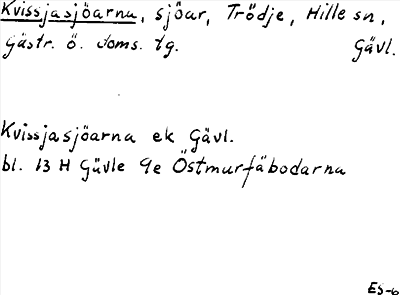 Kvissjasjöarna, sjöar, Trödje, Hille sn,
Gästr. ö. doms. tg. Gävl.
Kvissjasjöarna ek Gävl.
bl. 13 H Gävle 9e Östmurfäbodarna